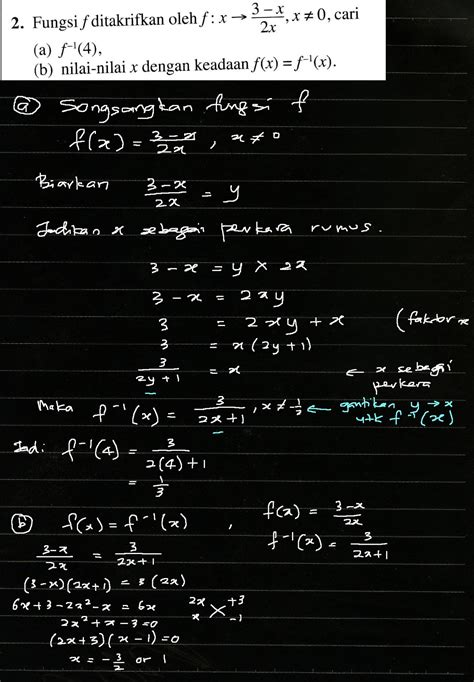 2. Fungsi f ditakrifkan oleh f : x → (3 − x)/(2x), x ≠ 0, cari
(a) f⁻¹(4),
(b) nilai-nilai x dengan keadaan f(x) = f⁻¹(x).
(a) Songsangkan fungsi f
f(x) = (3 − x)/(2x) , x ≠ 0
Biarkan (3 − x)/(2x) = y
Jadikan x sebagai perkara rumus.
3 − x = y × 2x
3 − x = 2xy
3 = 2xy + x (faktor x
3 = x(2y + 1)
3/(2y + 1) = x ← x sebagai perkara
Maka f⁻¹(x) = 3/(2x + 1) , x ≠ ½ ← gantikan y → x utk f⁻¹(x)
Jadi f⁻¹(4) = 3/(2(4) + 1)
= 1/3
(b) f(x) = f⁻¹(x) , f(x) = (3 − x)/(2x)
f⁻¹(x) = 3/(2x + 1)
(3 − x)/(2x) = 3/(2x + 1)
(3 − x)(2x + 1) = 3(2x)
6x + 3 − 2x² − x = 6x 2x +3
2x² + x − 3 = 0 x −1
(2x + 3)(x − 1) = 0
x = −3/2 or 1